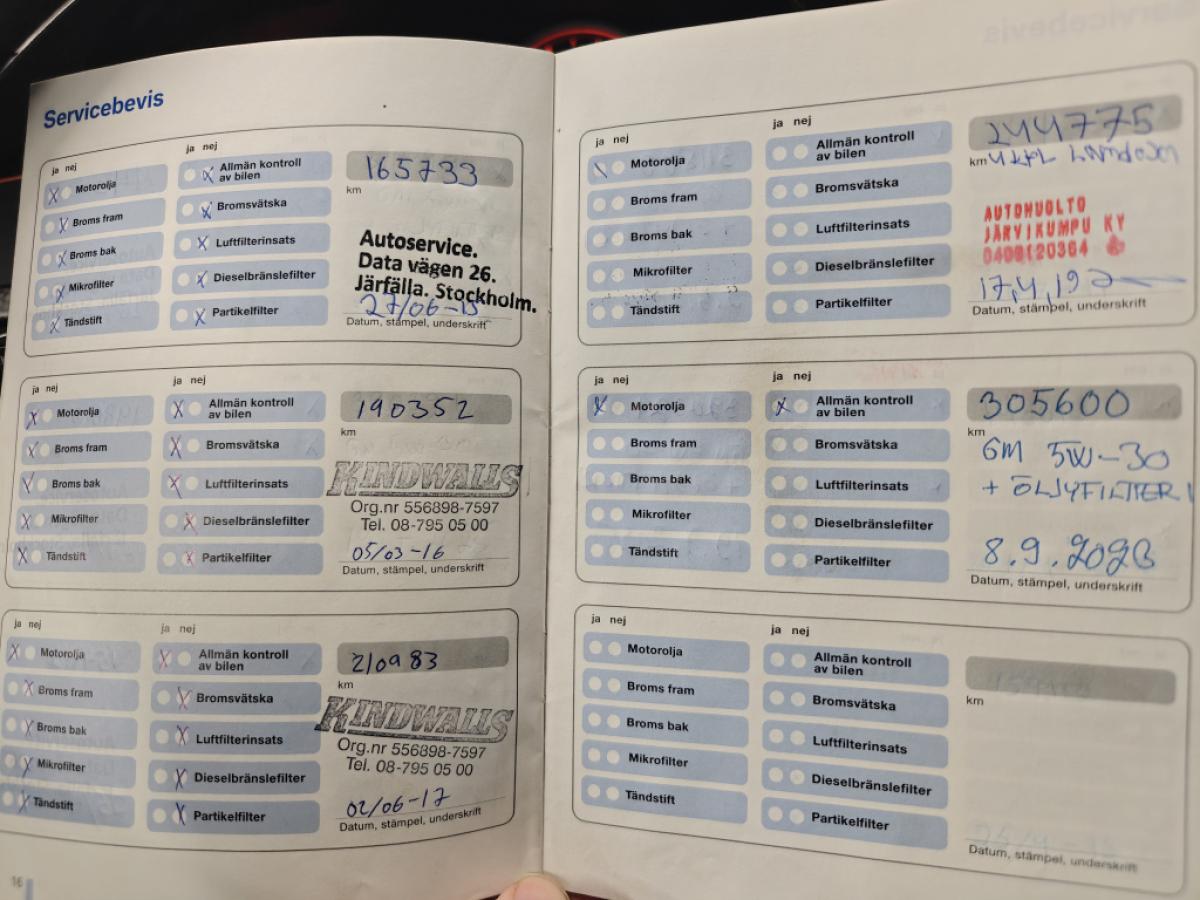 Servicebevis
ja nej
ja nej
165733
km
Motorolja
Allmän kontroll
av bilen
Broms fram
Bromsvätska
Broms bak
Luftfilterinsats
Mikrofilter
Dieselbränslefilter
Tändstift
Partikelfilter
Autoservice.
Data vägen 26.
Järfälla. Stockholm.
27/06-15
Datum, stämpel, underskrift
ja nej
ja nej
190352
km
Motorolja
Allmän kontroll
av bilen
Broms fram
Bromsvätska
Broms bak
Luftfilterinsats
Mikrofilter
Dieselbränslefilter
Tändstift
Partikelfilter
KINDWALLS
Org.nr 556898-7597
Tel. 08-795 05 00
05/03-16
Datum, stämpel, underskrift
ja nej
ja nej
210983
km
Motorolja
Allmän kontroll
av bilen
Broms fram
Bromsvätska
Broms bak
Luftfilterinsats
Mikrofilter
Dieselbränslefilter
Tändstift
Partikelfilter
KINDWALLS
Org.nr 556898-7597
Tel. 08-795 05 00
02/06-17
Datum, stämpel, underskrift
16
ja nej
ja nej
244775
km
Motorolja
Allmän kontroll
av bilen
Broms fram
Bromsvätska
Broms bak
Luftfilterinsats
Mikrofilter
Dieselbränslefilter
Tändstift
Partikelfilter
AUTOHUOLTO
JÄRVIKUMPU KY
0400120364
17,4,19
Datum, stämpel, underskrift
ja nej
ja nej
305600
km
Motorolja
Allmän kontroll
av bilen
Broms fram
Bromsvätska
Broms bak
Luftfilterinsats
Mikrofilter
Dieselbränslefilter
Tändstift
Partikelfilter
GM 5W-30
+ ÖLJYFILTTERI
8.9.2023
Datum, stämpel, underskrift
ja nej
ja nej
km
Motorolja
Allmän kontroll
av bilen
Broms fram
Bromsvätska
Broms bak
Luftfilterinsats
Mikrofilter
Dieselbränslefilter
Tändstift
Partikelfilter
Datum, stämpel, underskrift